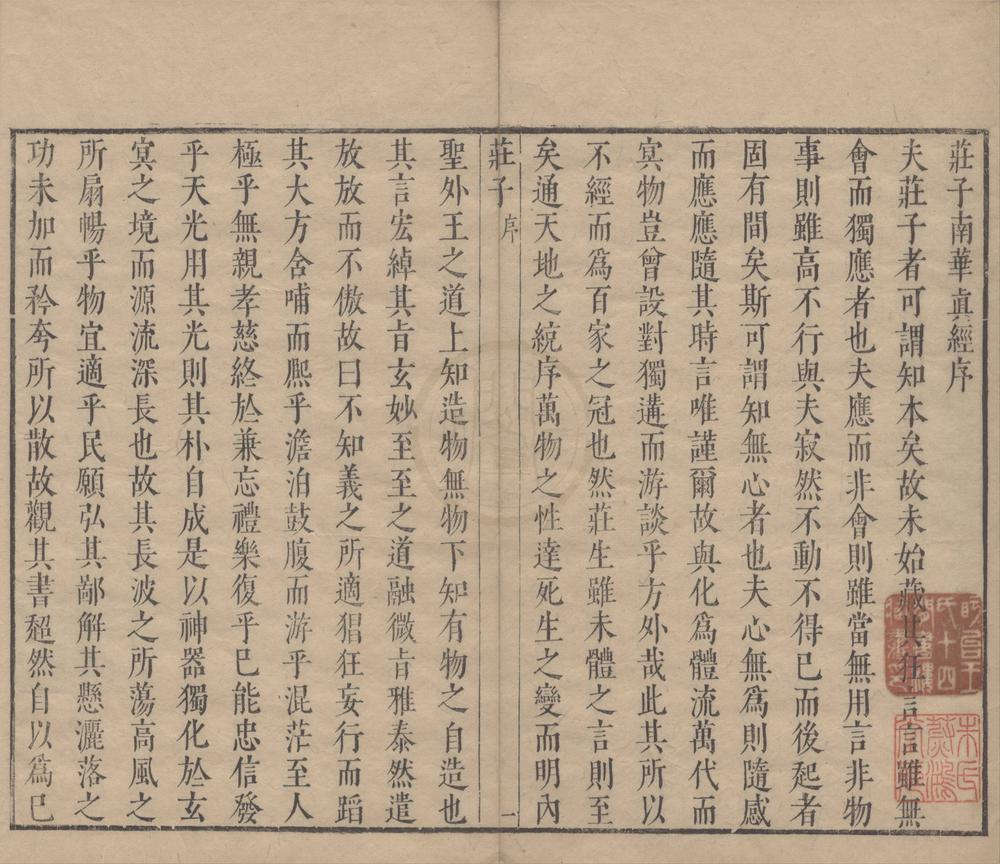 莊子南華眞經序
夫莊子者可謂知本矣故未始藏其狂言言雖無
會而獨應者也夫應而非會則雖當無用言非物
事則雖高不行與夫寂然不動不得已而後起者
固有間矣斯可謂知無心者也夫心無爲則隨感
而應應隨其時言唯謹爾故與化爲體流萬代而
冥物豈曾設對獨遘而游談乎方外哉此其所以
不經而爲百家之冠也然莊生雖未體之言則至
矣通天地之統序萬物之性達死生之變而明內
莊子 序 一
聖外王之道上知造物無物下知有物之自造也
其言宏綽其旨玄妙至至之道融微旨雅泰然遣
放放而不傲故曰不知義之所適猖狂妄行而蹈
其大方含哺而熈乎澹泊鼓腹而游乎混茫至人
極乎無親孝慈終於兼忘禮樂復乎已能忠信發
乎天光用其光則其朴自成是以神器獨化於玄
冥之境而源流深長也故其長波之所蕩高風之
所扇暢乎物宜適乎民願弘其鄙解其懸灑落之
功未加而矜夸所以散故觀其書超然自以爲已